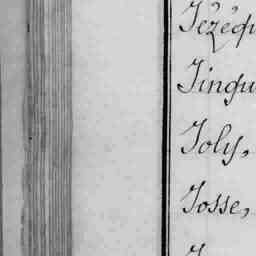 Jézéqu
Jingu
Joly,
Josse,